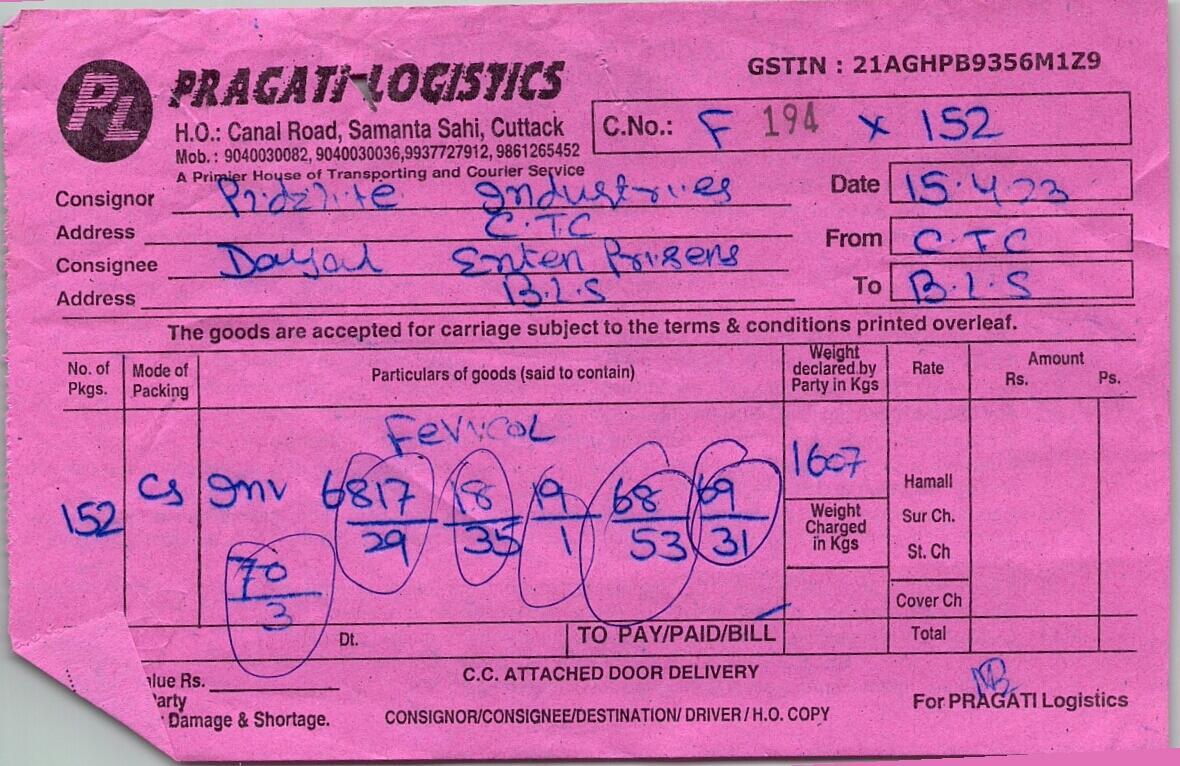 GSTIN : 21AGHPB9356M1Z9
PL
PRAGATI LOGISTICS
H.O.: Canal Road, Samanta Sahi, Cuttack
Mob. : 9040030082, 9040030036,9937727912, 9861265452
A Primier House of Transporting and Courier Service
C.No.: F 194 x 152
Consignor Pidzlite Industries
Date 15.4.23
Address C.T.C
From C.T.C
Consignee Dayal Enten Prisens
Address B.L.S
To B.L.S
The goods are accepted for carriage subject to the terms & conditions printed overleaf.
No. of Pkgs.
Mode of Packing
Particulars of goods (said to contain)
Weight declared by Party in Kgs
Rate
Amount
Rs. Ps.
Fevycol
152 Cs Inv 6817/29 18/35 19/1 68/53 69/31
70/3
1607
Weight Charged in Kgs
Hamall
Sur Ch.
St. Ch
Cover Ch
Total
Dt.
TO PAY/PAID/BILL
lue Rs.
arty
Damage & Shortage.
C.C. ATTACHED DOOR DELIVERY
CONSIGNOR/CONSIGNEE/DESTINATION/ DRIVER / H.O. COPY
For PRAGATI Logistics